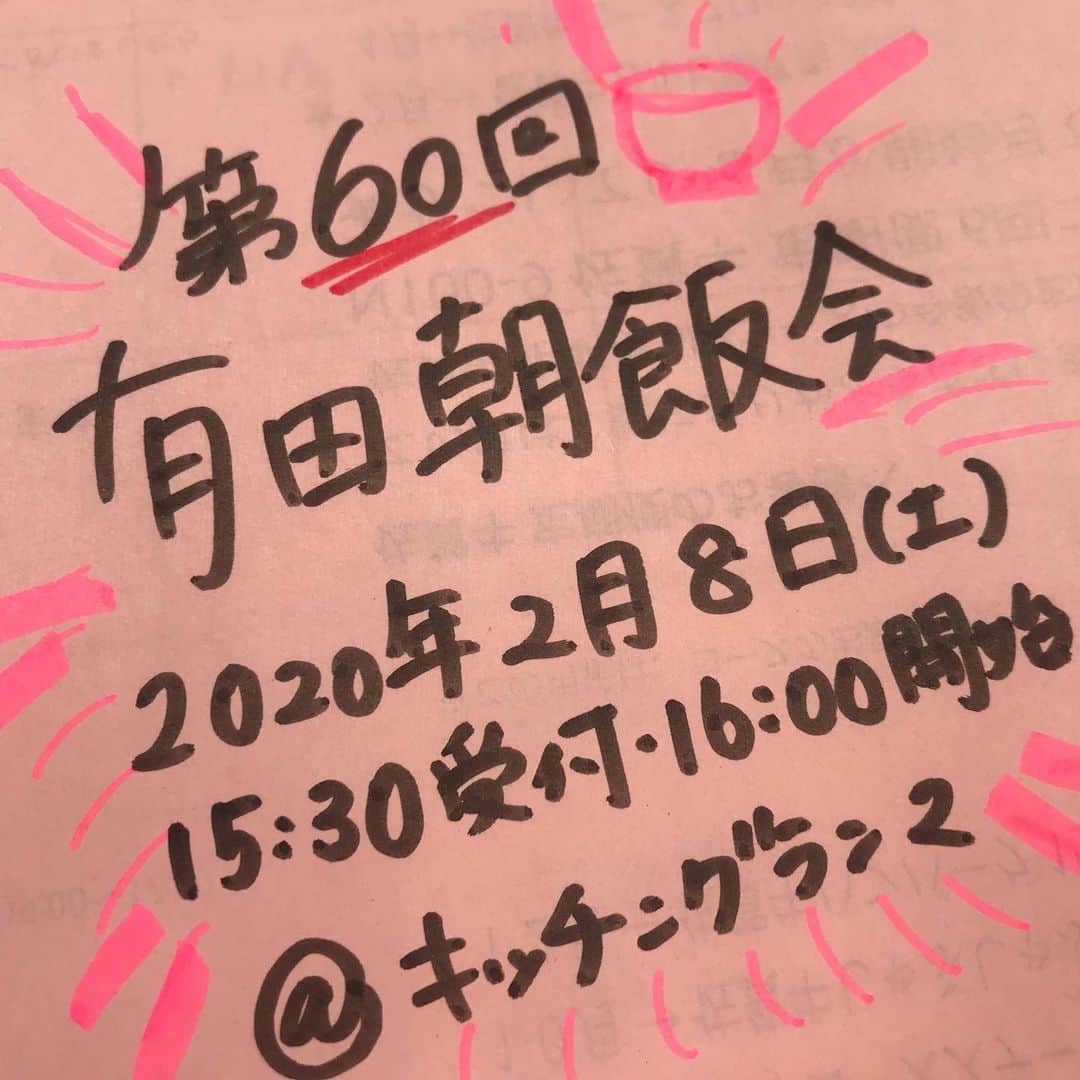 第60回
有田朝飯会
2020年2月8日(土)
15:30受付・16:00開始
@キッチングラン2